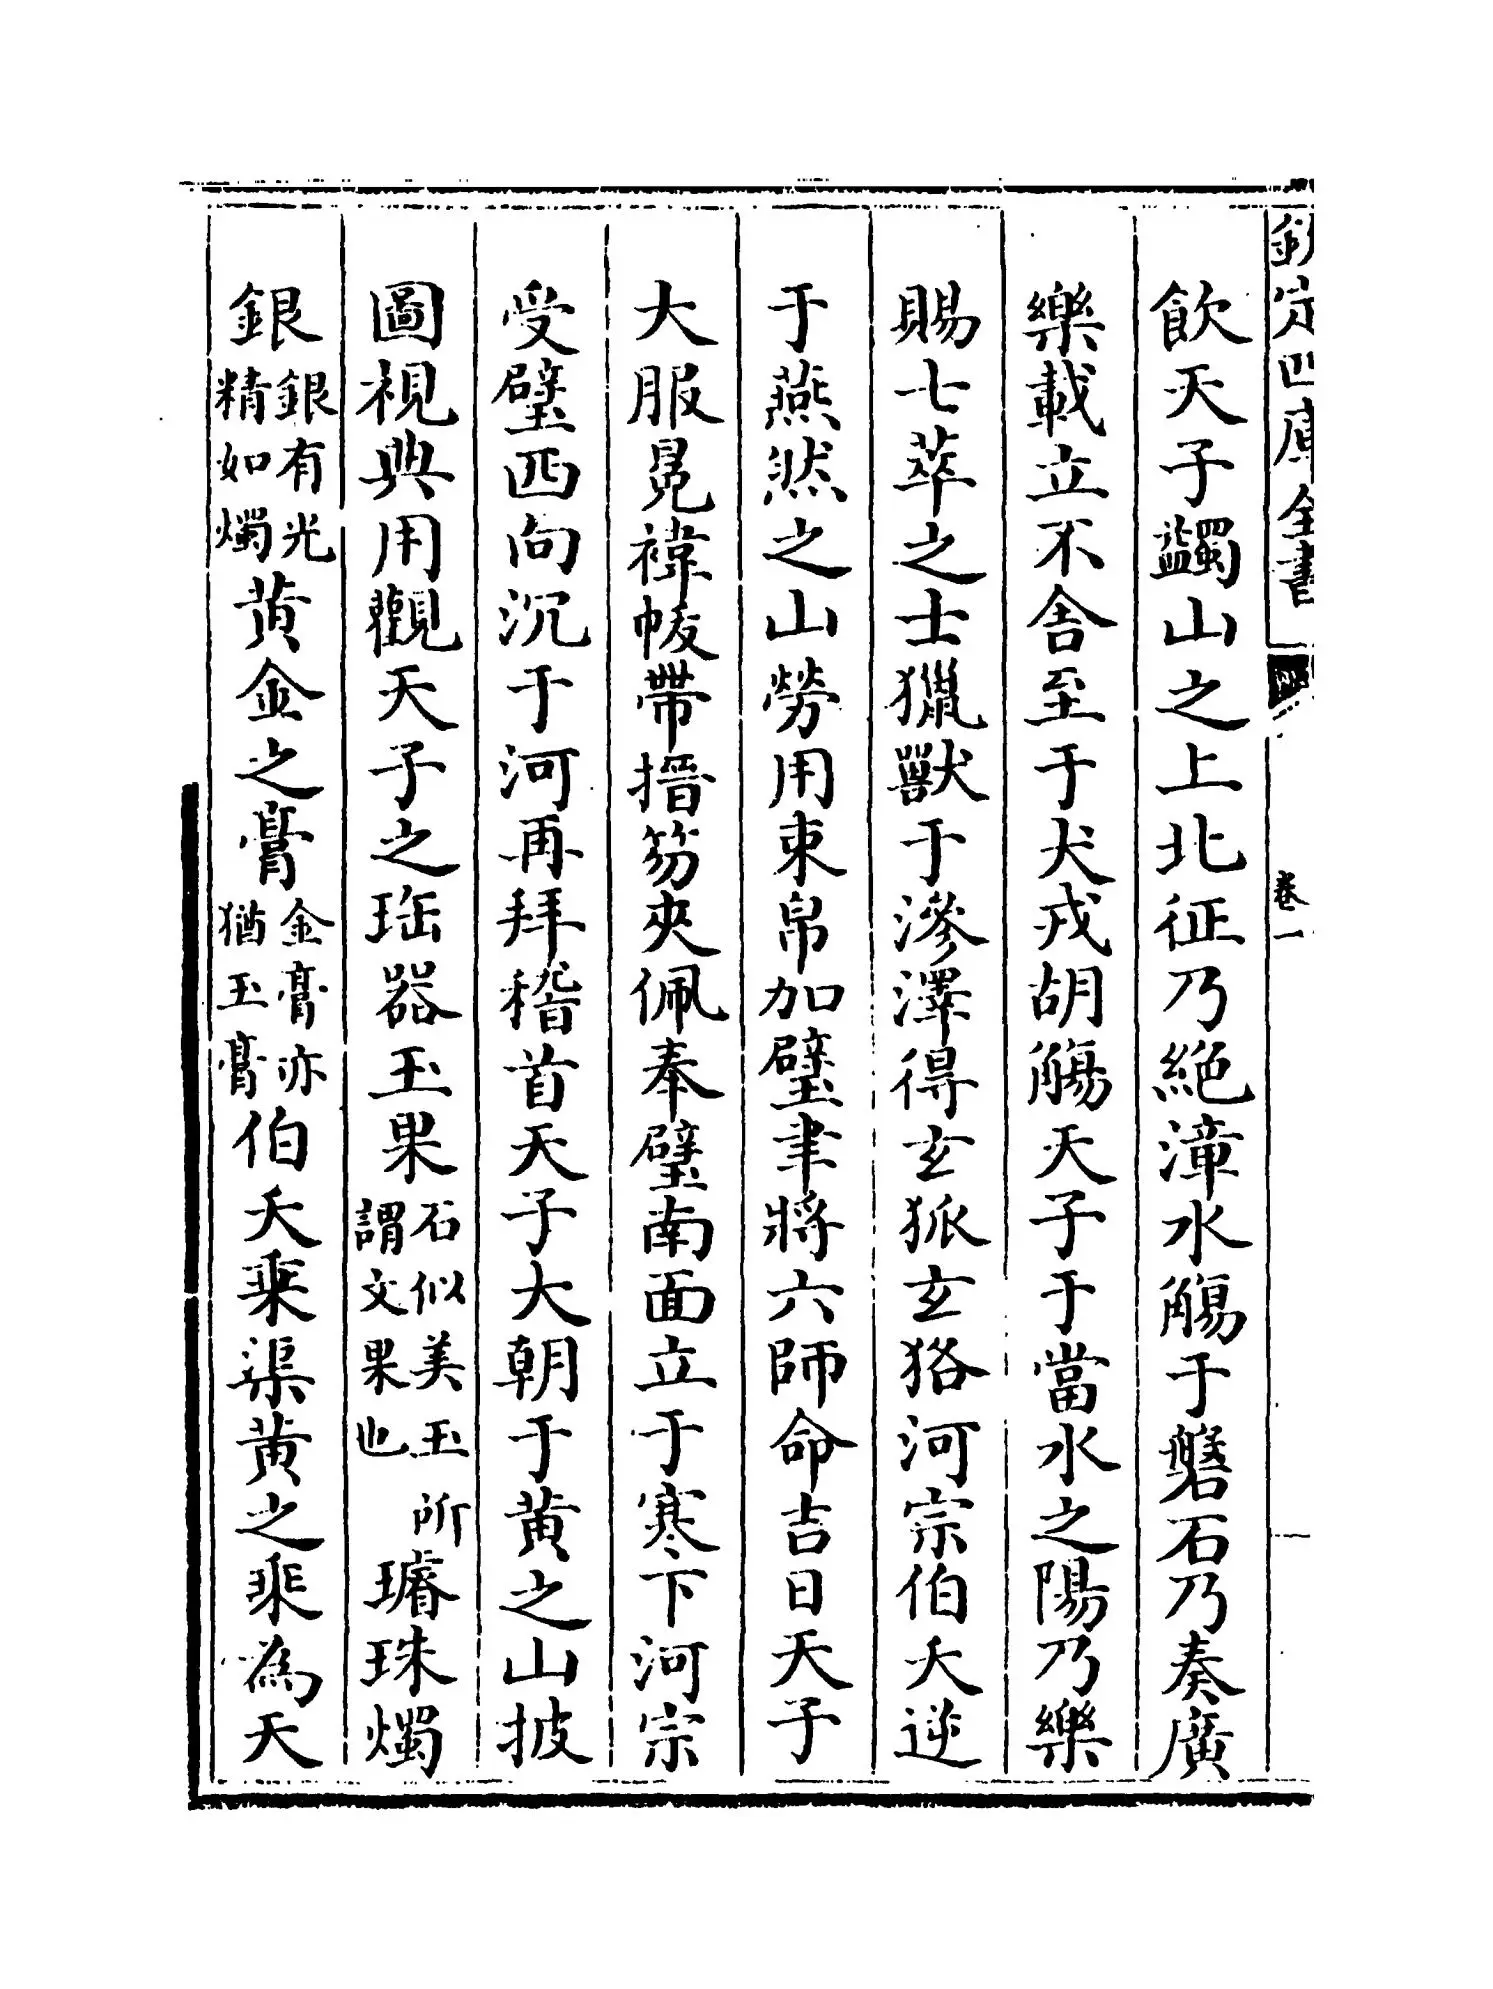 欽定四庫全書
卷一
飲天子蠲山之上北征乃絶漳水觴于磐石乃奏廣
樂載立不舍至于犬戎胡觴天子于當水之陽乃樂
賜七萃之士獵獸于滲澤得玄狐玄狢河宗伯夭逆
于燕然之山勞用束帛加璧聿將六師命吉日天子
大服冕禕帗帶搢笏夾佩奉璧南面立于寒下河宗
受璧西向沉于河再拜稽首天子大朝于黄之山披
圖視典用觀天子之珤器玉果石似美玉所謂文果也璿珠燭
銀銀有光精如燭黄金之膏金膏亦猶玉膏伯夭乘渠黄之乘為天